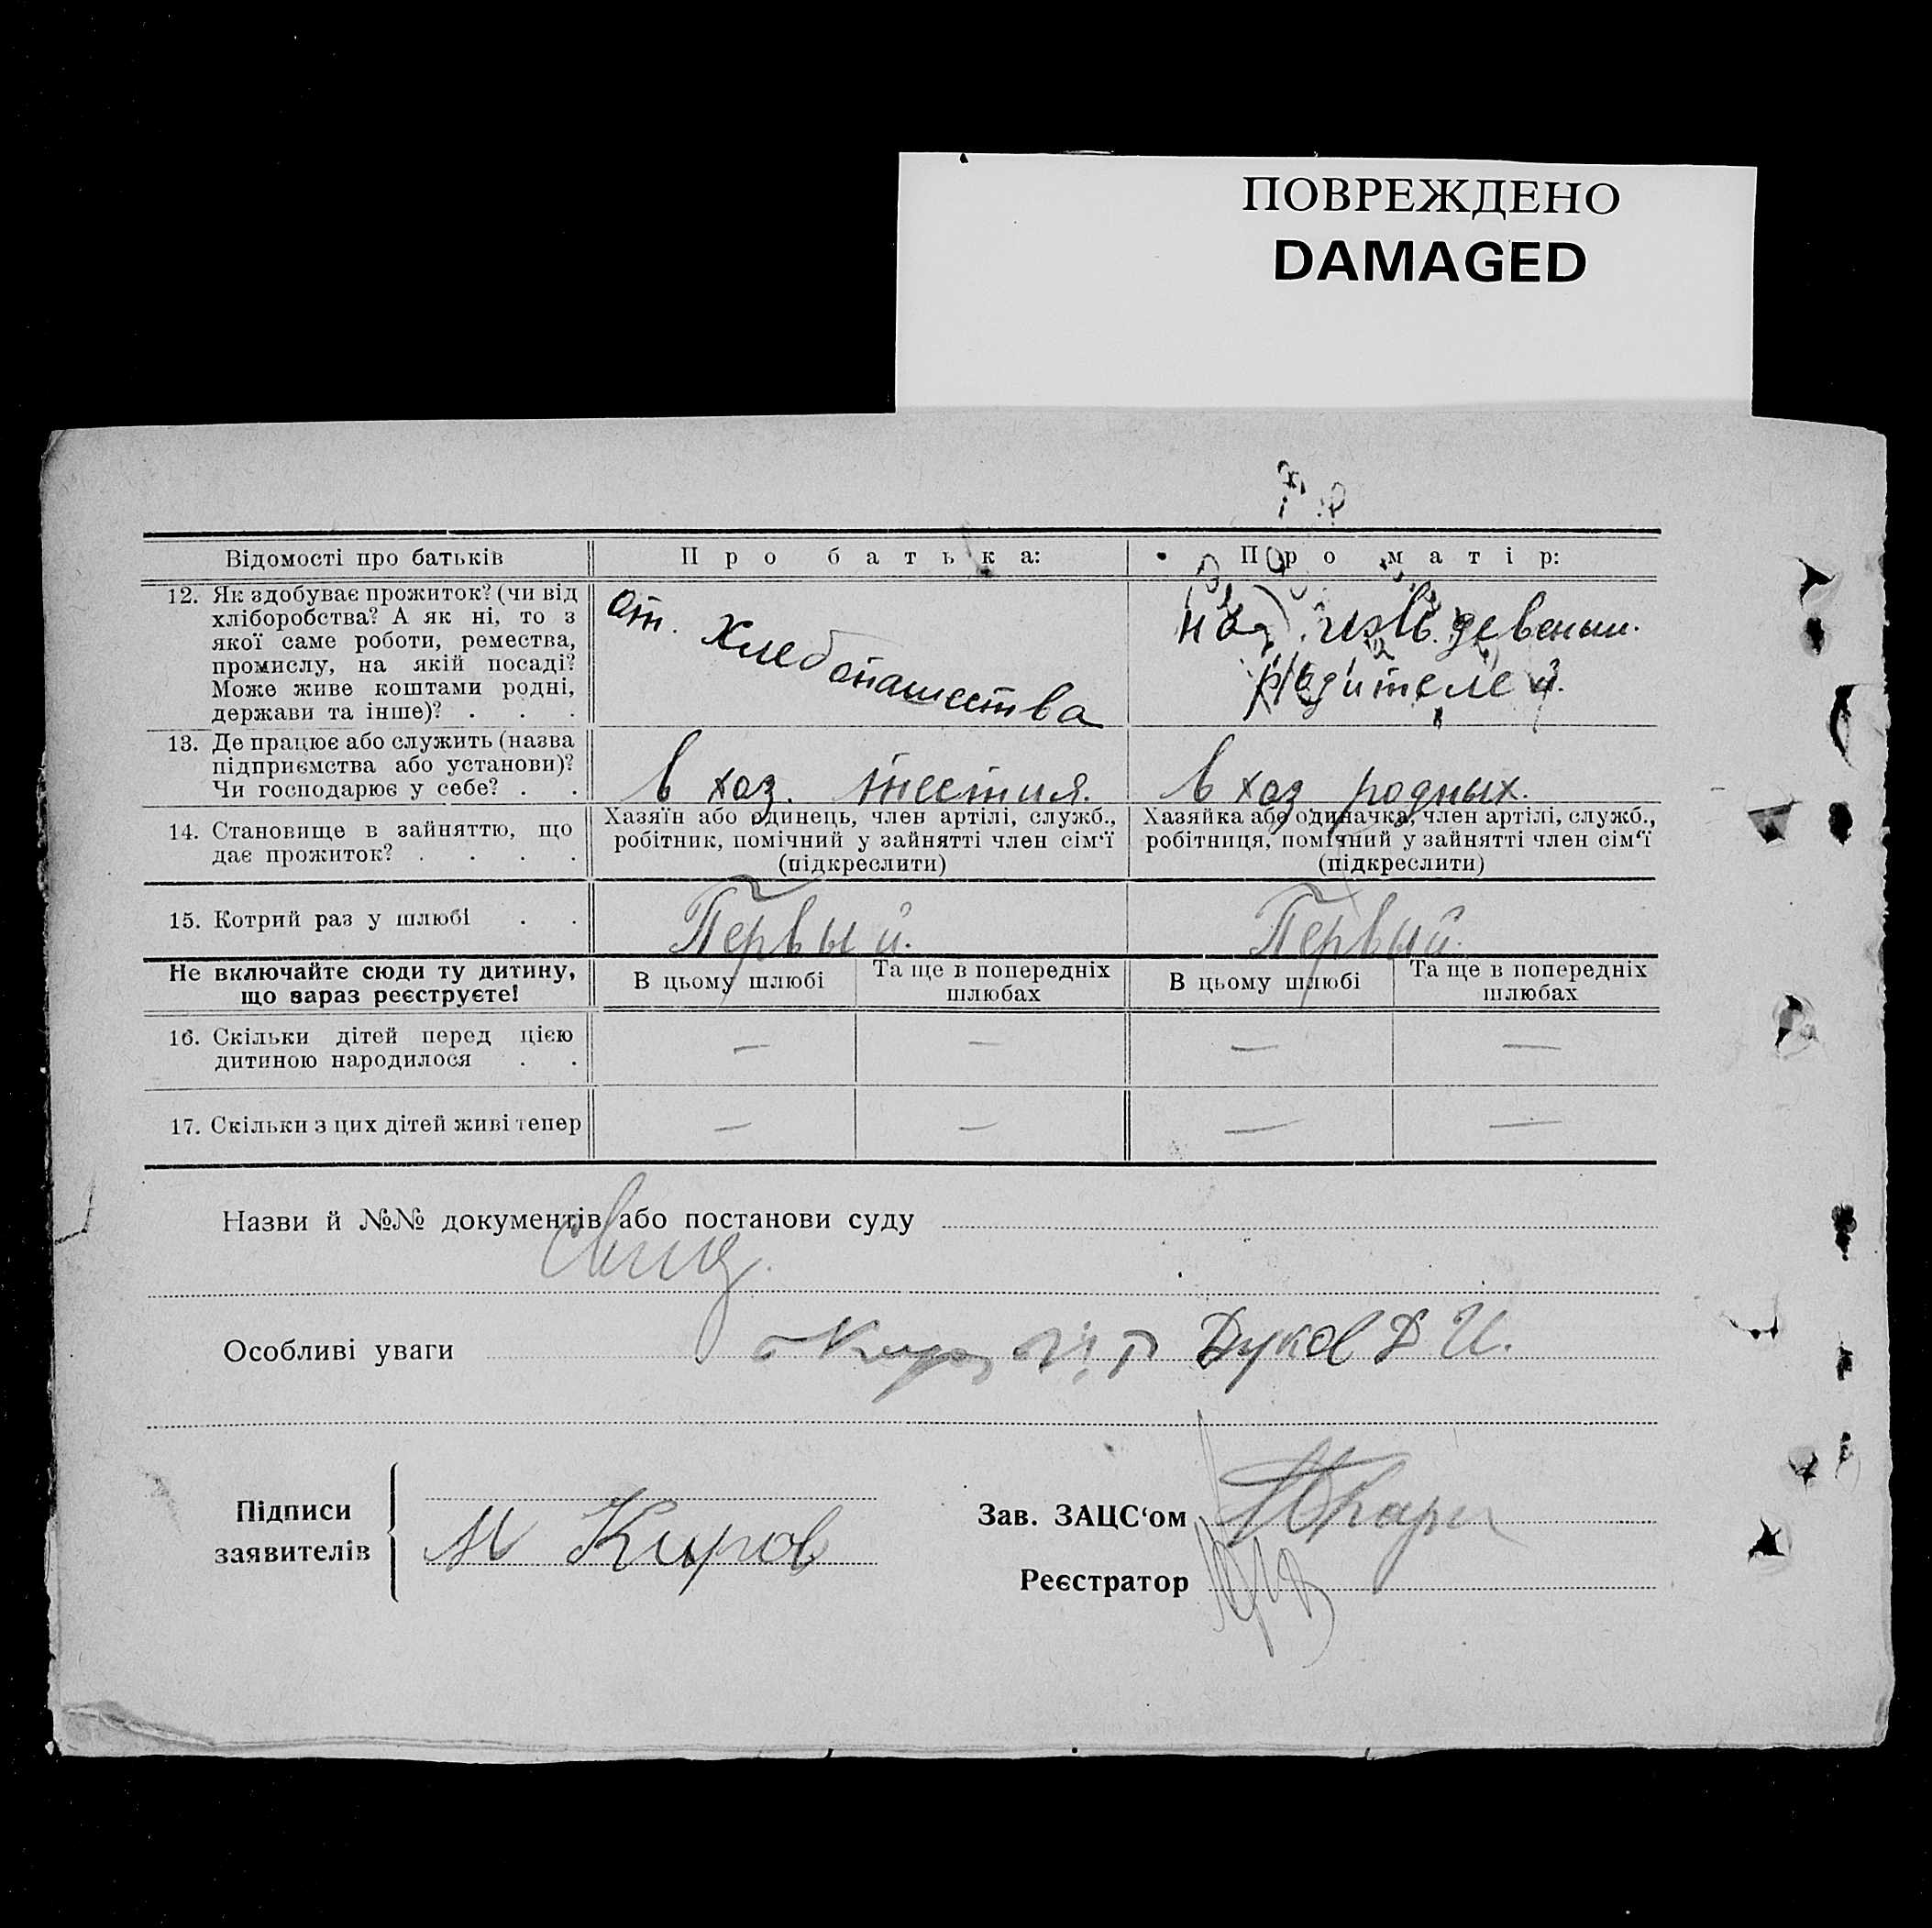 ПОВРЕЖДЕНО
DAMAGED
Відомості про батьків
Про батька:
Про матір:
12. Як здобуває прожиток? (чи від
хліборобства? А як ні, то з
якої саме роботи, ремества,
промислу, на якій посаді?
Може живе коштами родні,
держави та інше)? . . .
от. Хлебопашества
на
родителей.
13. Де працює або служить (назва
підприємства або установи)?
Чи господарює у себе? . .
в хоз. тестия.
в хоз родных.
14. Становище в зайняттю, що
дає прожиток? . . . .
Хазяїн або одинець, член артілі, служб.,
робітник, помічний у зайнятті член сім‘ї
(підкреслити)
Хазяйка або одиначка, член артілі, служб.,
робітниця, помічний у зайнятті член сім‘ї
(підкреслити)
15. Котрий раз у шлюбі . .
Первый.
Первый.
Не включайте сюди ту дитину,
що зараз реєструєте!
В цьому шлюбі
Та ще в попередніх
шлюбах
В цьому шлюбі
Та ще в попередніх
шлюбах
16. Скільки дітей перед цією
дитиною народилося . .
— — — —
17. Скільки з цих дітей живі тепер
— — — —
Назви й №№ документів або постанови суду
Особливі уваги
Дуков Д И.
Підписи
заявителів
М Киров
Зав. ЗАЦС‘ом
Реєстратор